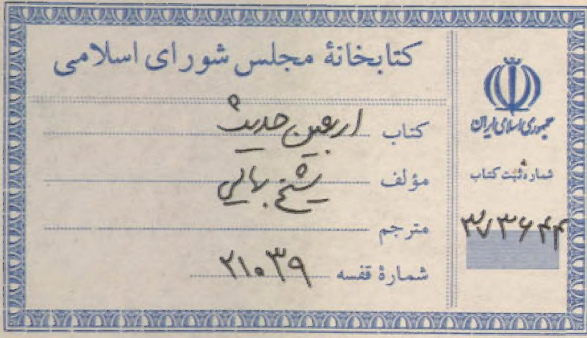 کتابخانهٔ مجلس شورای اسلامی
کتاب اربعین حدیث
مؤلف شیخ بهائی
مترجم
شمارهٔ قفسه ۲۱۰۳۹
جمهوری اسلامی ایران
شماره ثبت کتاب
۳۷۳۶۴۴